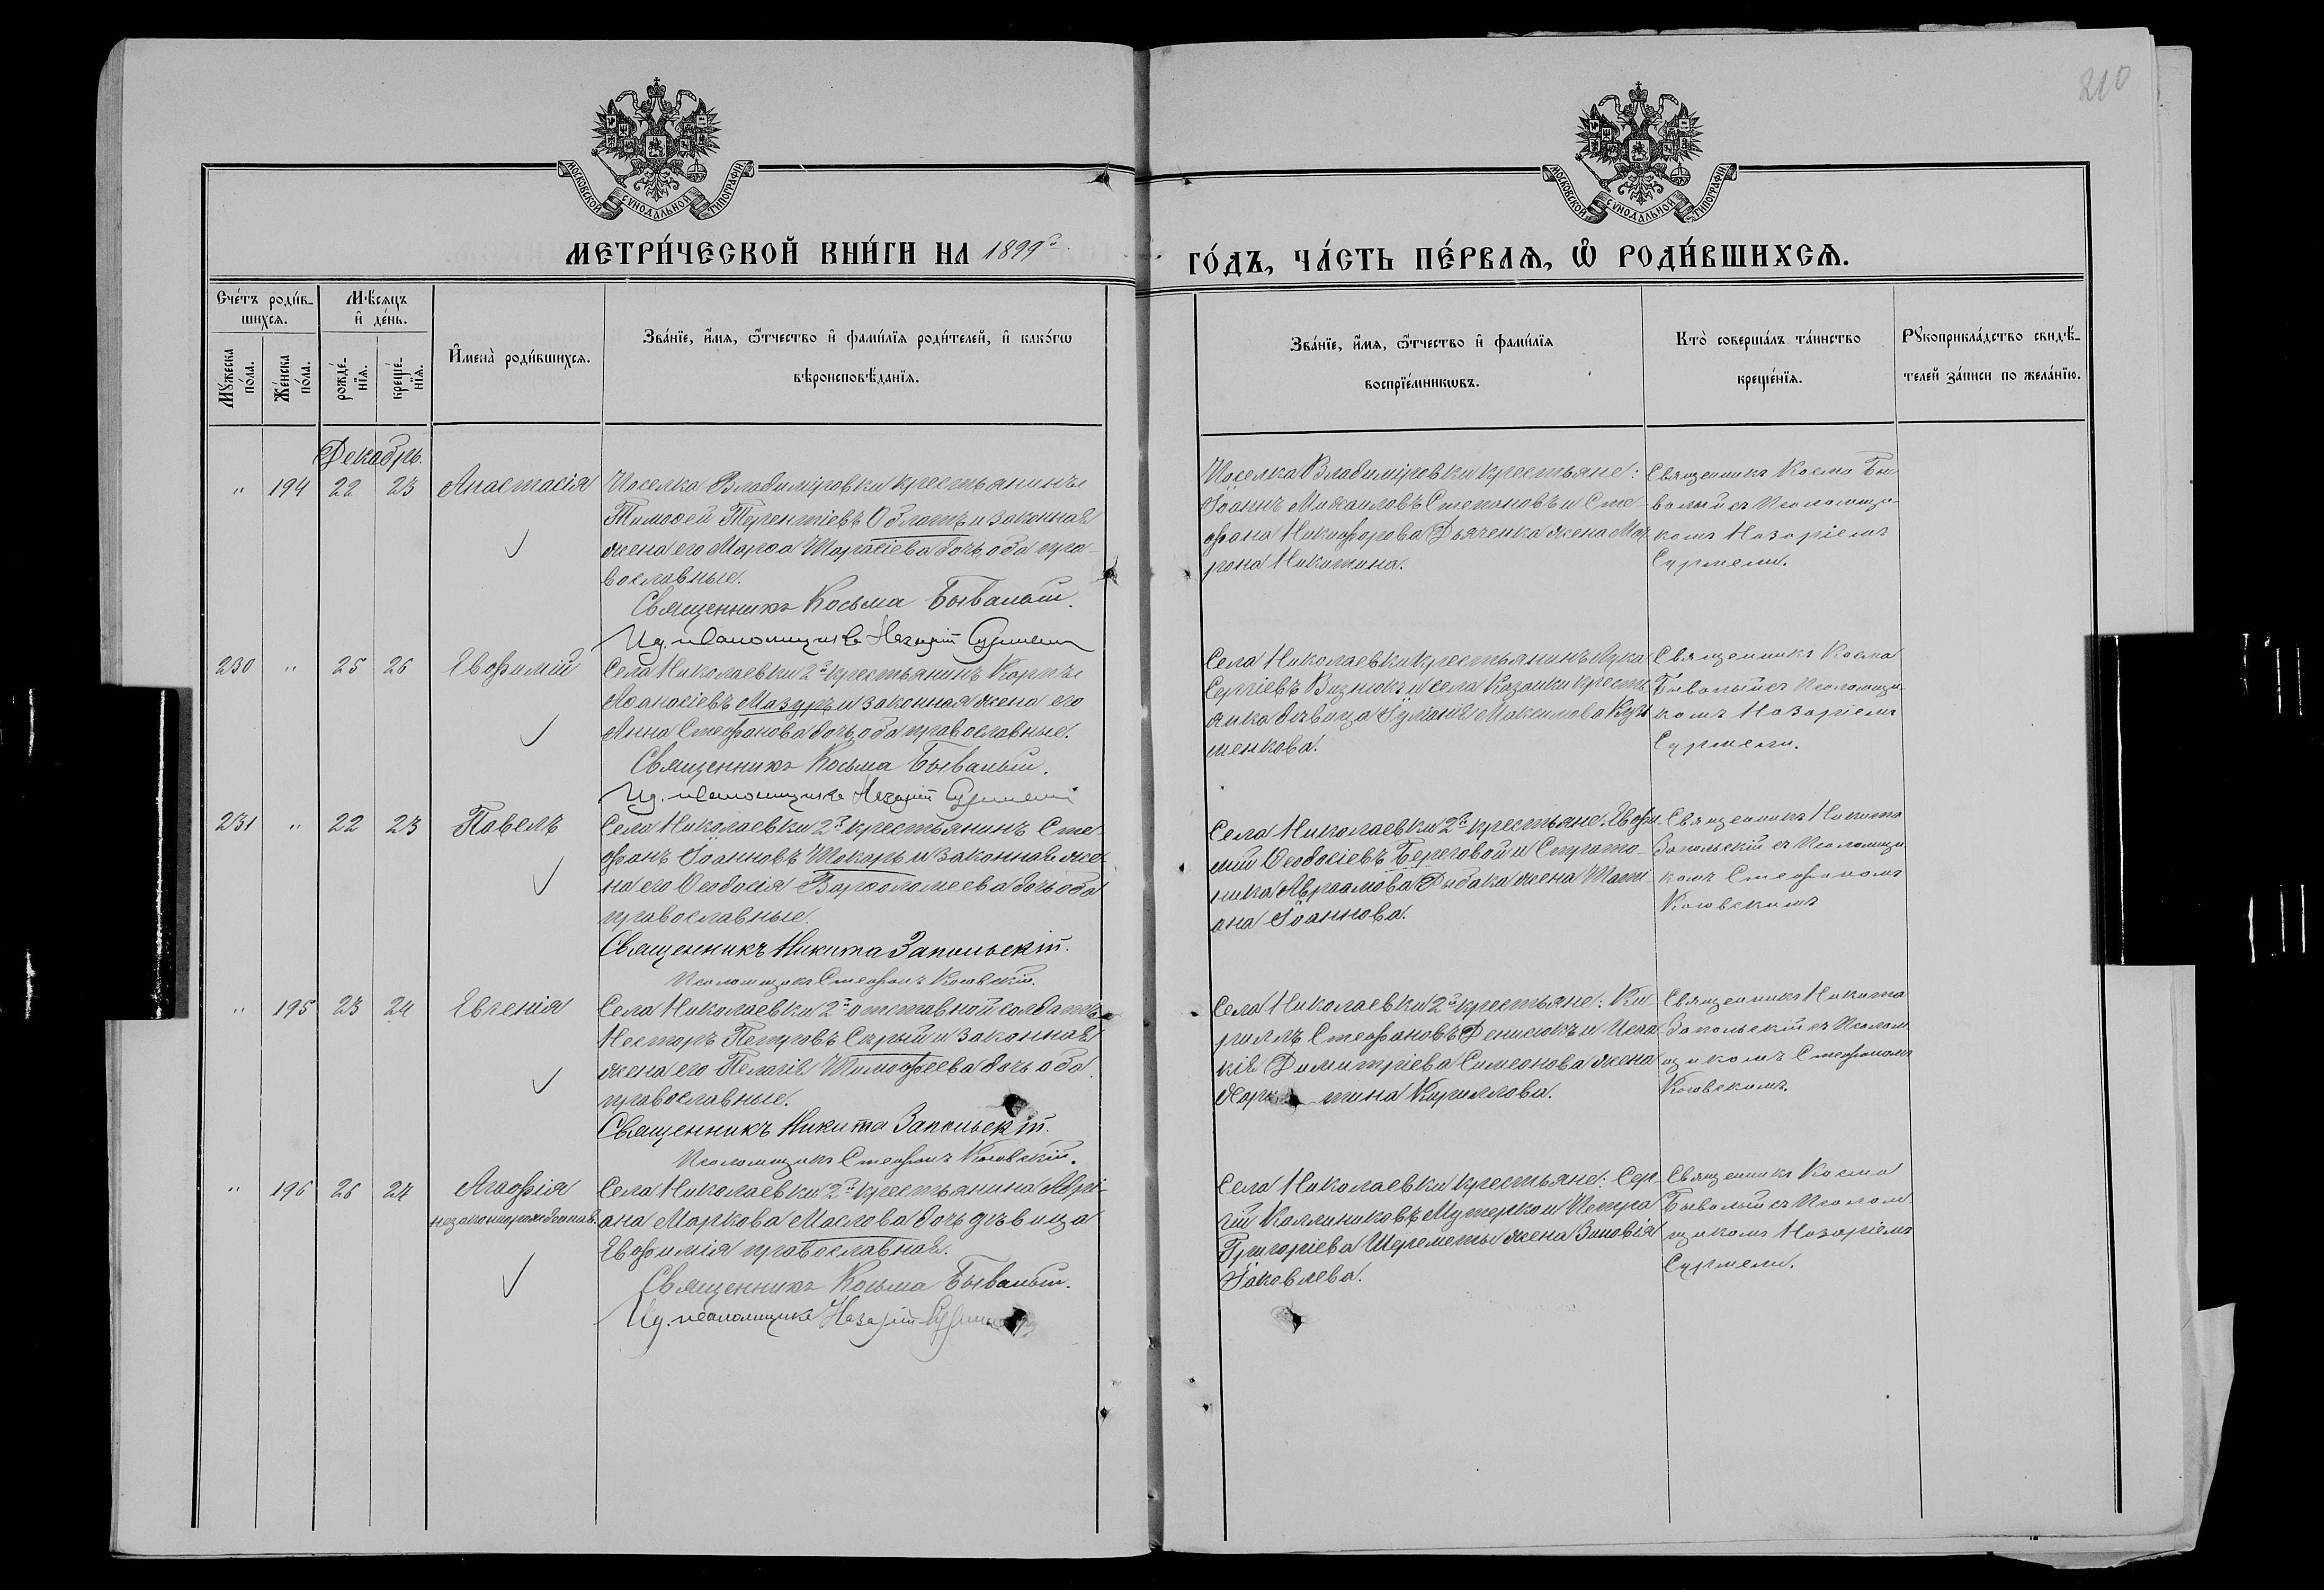 210
МОСКОВСКОЙ СѴНОДАЛЬНОЙ ТИПОГРАФІИ
МОСКОВСКОЙ СѴНОДАЛЬНОЙ ТИПОГРАФІИ
МЕТРИ́ЧЕСКОЙ КНИ́ГИ НА 1899й
ГО́ДЪ, ЧА́СТЬ ПЕ́РВАѦ, Ѡ РОДИ́ВШИХСѦ.
Сче́тъ роди́в-
шихсѧ.
Мѣ́сѧцъ
и҆ де́нь.
Мꙋ́жеска
по́ла.
Же́нска
по́ла.
рожде́-
нїѧ.
креще́-
нїѧ.
И҆мена̀ роди́вшихсѧ.
Зва́нїе, и҆́мѧ, ѻ҆́тчество и҆ фами́лїѧ роди́телей, и҆ како́гѡ
вѣроисповѣ́данїѧ.
Зва́нїе, и҆́мѧ, ѻ҆́тчество и҆ фами́лїѧ
воспрїе́мникѡвъ.
Кто̀ соверша́лъ та́инство
креще́нїѧ.
Рꙋкоприкла́дство свидѣ́-
телей за́писи по жела́нїю.
Декабрь.
" 194 22 23 Анастасія
Поселка Владиміровки крестьянинъ
Тимоѳей Терентіевъ Облатъ и законная
жена его Марѳа Тарасіева дочь оба пра-
вославные.
Священникъ Косьма Бывалый.
Ид. псаломщика Назарій
Поселка Владиміровки крестьяне:
Іоаннъ Михаиловъ Степановъ и Сте-
фана Никифорова Дьяченка жена Мат-
рона Никитина.
Священникъ Косма Бы-
валый съ Псаломщи-
комъ Назаріемъ
230 " 25 26 Евфимій
Села Николаевки 2й крестьянинъ Карпъ
Аѳанасіевъ Мазуръ и законная жена его
Анна Стефанова дочь, оба православные.
Священникъ Косьма Бывалый.
Ид. псаломщика Назарій
Села Николаевки крестьянинъ Лука
Сергіевъ Визнюкъ и села Казанки кресть-
янка дѣвица Іуліанія Максимова Куз-
менкова.
Священникъ Косма
Бывалый съ Псаломщи-
комъ Назаріемъ
231 " 22 23 Павелъ
Села Николаевки 2й крестьянинъ Сте-
фанъ Іоанновъ Токарь и законная же-
на его Ѳеодосія Варѳоломеева дочь оба
православные.
Священникъ Никита Запольскій.
Псаломщикъ Стефанъ
Села Николаевки 2й крестьяне: Евфи-
мій Ѳеодосіевъ Береговой и Страто-
ника Авраамова Рыбака жена Тати-
ана Іоаннова.
Священникъ Никита
Запольскій съ Псаломщи-
комъ Стефаномъ
" 195 23 24 Евгенія
Села Николаевки 2й отставной солдатъ
Несторъ Петровъ Сѣрый и законная
жена его Пелагія Тимофеева дочь оба
православные.
Священникъ Никита Запольскій.
Псаломщикъ Стефанъ
Села Николаевки 2й крестьяне: Ки-
риллъ Стефановъ Денисюкъ и Исаа-
кія Димитріева Симеонова жена
Хари тина Кириллова.
Священникъ Никита
Запольскій съ Псалом-
щикомъ Стефаномъ
" 196 26 27 Агафія
незаконнорожденная.
Села Николаевки 2й крестьянина Адрі-
ана Маркова Маслова дочь дѣвица
Евфимія православная.
Священникъ Косьма Бывалый.
Ид. псаломщика Назарій
Села Николаевки крестьяне: Сер-
гій Каллиниковъ Мутерко и Петра
Григоріева Шереметы жена Зиновія
Іаковлева.
Священникъ Косма
Бывалый съ Псалом-
щикомъ Назаріемъ